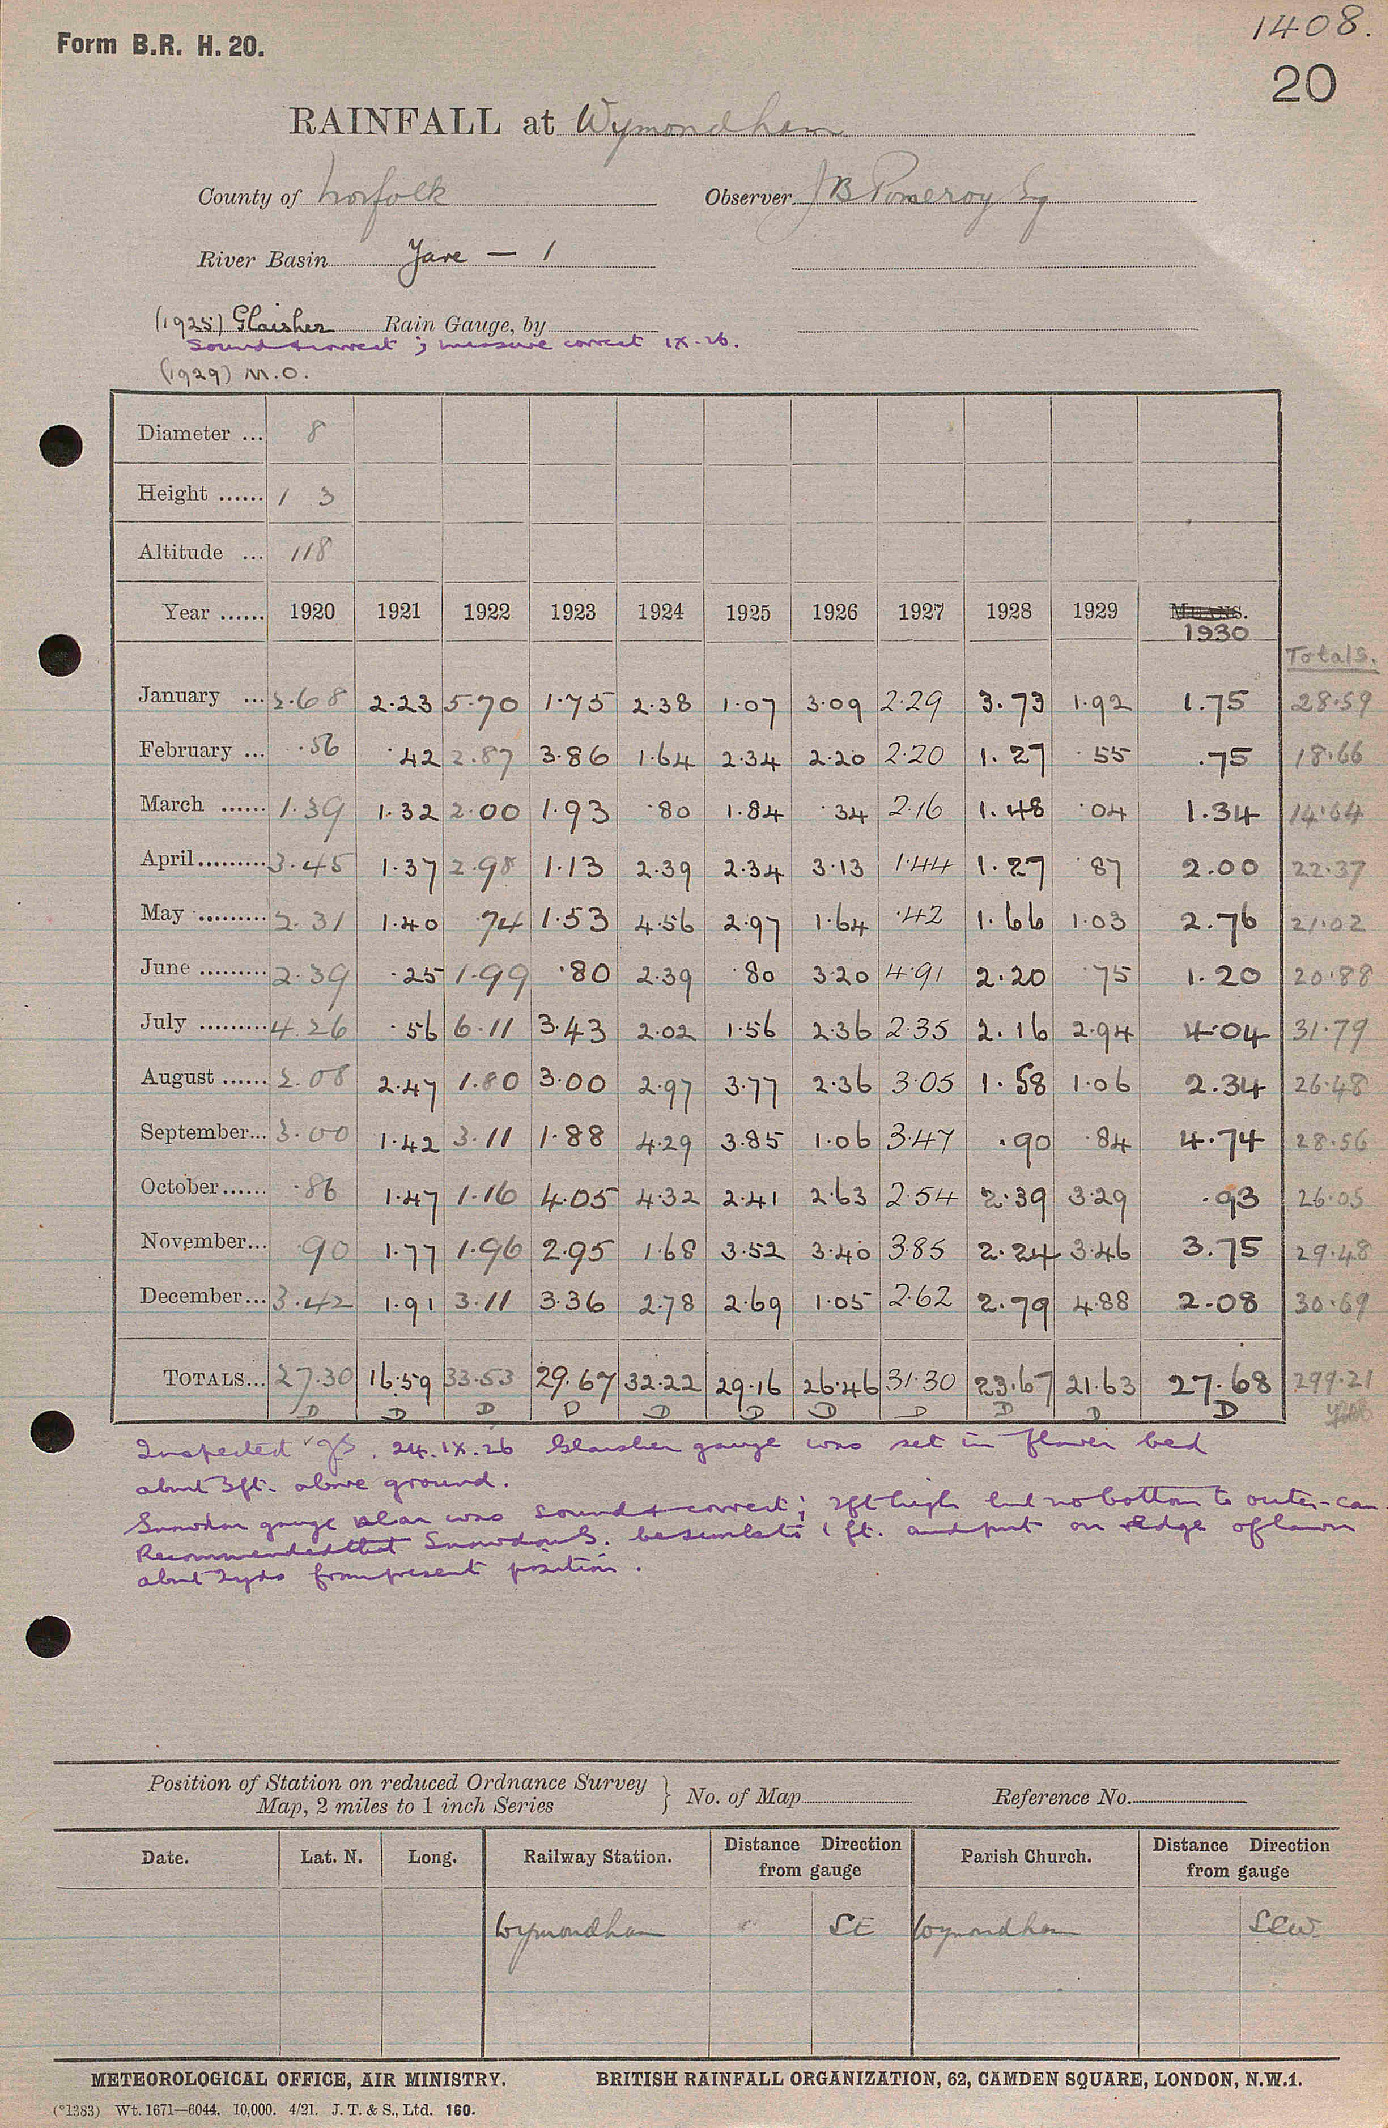 1408.
Form B.R. H. 20.
20
RAINFALL at Wymondham
County of Norfolk Observer J B Pomeroy Esq
River Basin Yare — 1
(1925) Glaisher Rain Gauge, by
Sound & correct ; measure correct IX.26.
(1929) M.O.
Diameter ... 8
Height ...... 1 3
Altitude ... 118
Year ...... 1920 1921 1922 1923 1924 1925 1926 1927 1928 1929 MEANS. 1930
Totals.
January ... 2.68 2.23 5.70 1.75 2.38 1.07 3.09 2.29 3.73 1.92 1.75 28.59
February ... .56 .42 2.87 3.86 1.64 2.34 2.20 2.20 1.27 .55 .75 18.66
March ...... 1.39 1.32 2.00 1.93 .80 1.84 .34 2.16 1.48 .04 1.34 14.64
April ......... 3.45 1.37 2.98 1.13 2.39 2.34 3.13 1.44 1.27 .87 2.00 22.37
May ......... 2.31 1.40 .74 1.53 4.56 2.97 1.64 .42 1.66 1.03 2.76 21.02
June ......... 2.39 .25 1.99 .80 2.39 .80 3.20 4.91 2.20 .75 1.20 20.88
July ......... 4.26 .56 6.11 3.43 2.02 1.56 2.36 2.35 2.16 2.94 4.04 31.79
August ...... 2.08 2.47 1.80 3.00 2.97 3.77 2.36 3.05 1.58 1.06 2.34 26.48
September... 3.00 1.42 3.11 1.88 4.29 3.85 1.06 3.47 .90 .84 4.74 28.56
October...... .86 1.47 1.16 4.05 4.32 2.41 2.63 2.54 2.39 3.29 .93 26.05
November... .90 1.77 1.96 2.95 1.68 3.52 3.40 3.85 2.24 3.46 3.75 29.48
December... 3.42 1.91 3.11 3.36 2.78 2.69 1.05 2.62 2.79 4.88 2.08 30.69
TOTALS... 27.30 16.59 33.53 29.67 32.22 29.16 26.46 31.30 23.67 21.63 27.68 299.21
D D D D D D D D D D D
Inspected 24.IX.26 Glaisher gauge was set in flower bed
about 3ft. above ground.
Snowdon gauge also was sound & correct; 2ft high but no bottom to outer-can.
Recommended that Snowdon be sunk to 1 ft. and put on edge of lawn
about 2yds from present position.
Position of Station on reduced Ordnance Survey Map, 2 miles to 1 inch Series } No. of Map Reference No.
Date. Lat. N. Long. Railway Station. Distance Direction from gauge Parish Church. Distance Direction from gauge
Wymondham SE Wymondham
METEOROLOGICAL OFFICE, AIR MINISTRY. BRITISH RAINFALL ORGANIZATION, 62, CAMDEN SQUARE, LONDON, N.W.1.
(*1383) Wt. 1671—6044. 10,000. 4/21. J. T. & S., Ltd. 160.